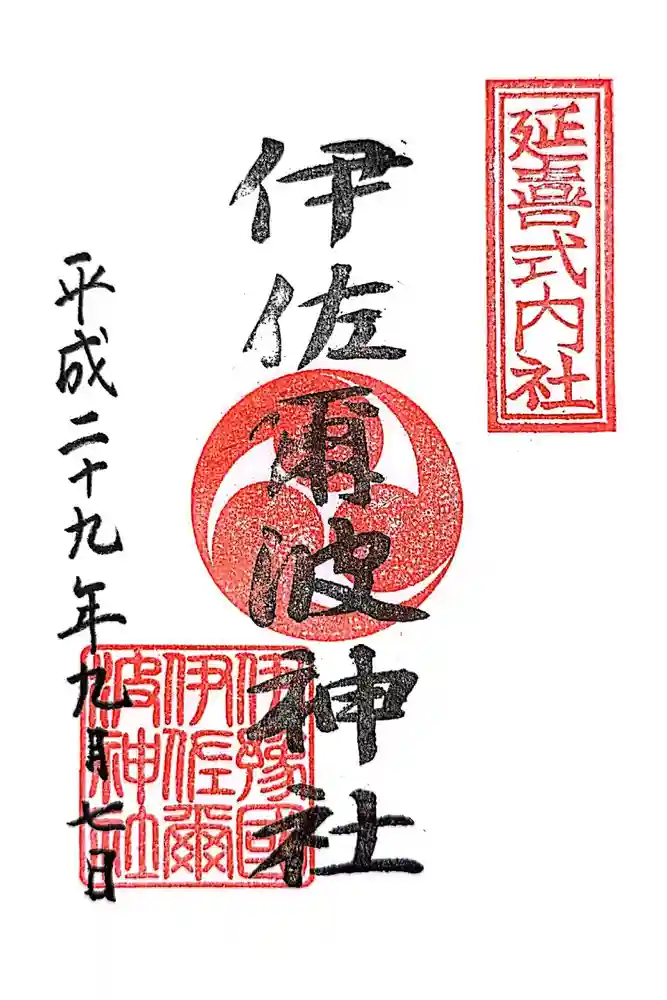 延喜式内社
伊佐爾波神社
平成二十九年九月七日
伊豫國
伊佐爾
波神社